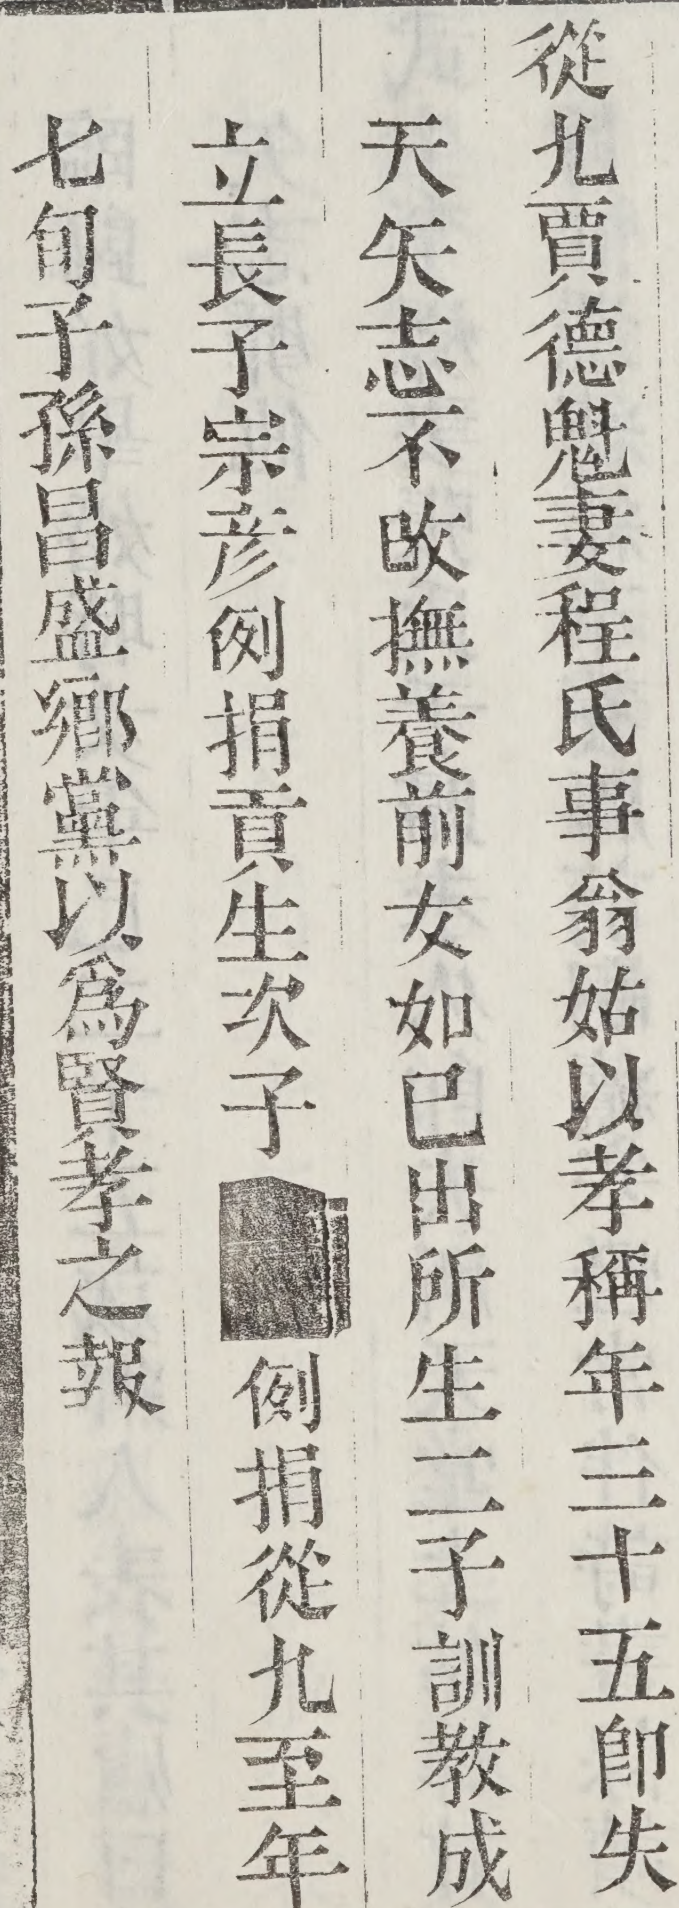 從九賈德魁妻程氏事翁姑以孝稱年三十五卽失
天矢志不改撫養前女如已出所生二子訓教成
立長子宗彦例捐貢生次子例捐從九至年
七旬子孫昌盛鄉黨以爲賢孝之報